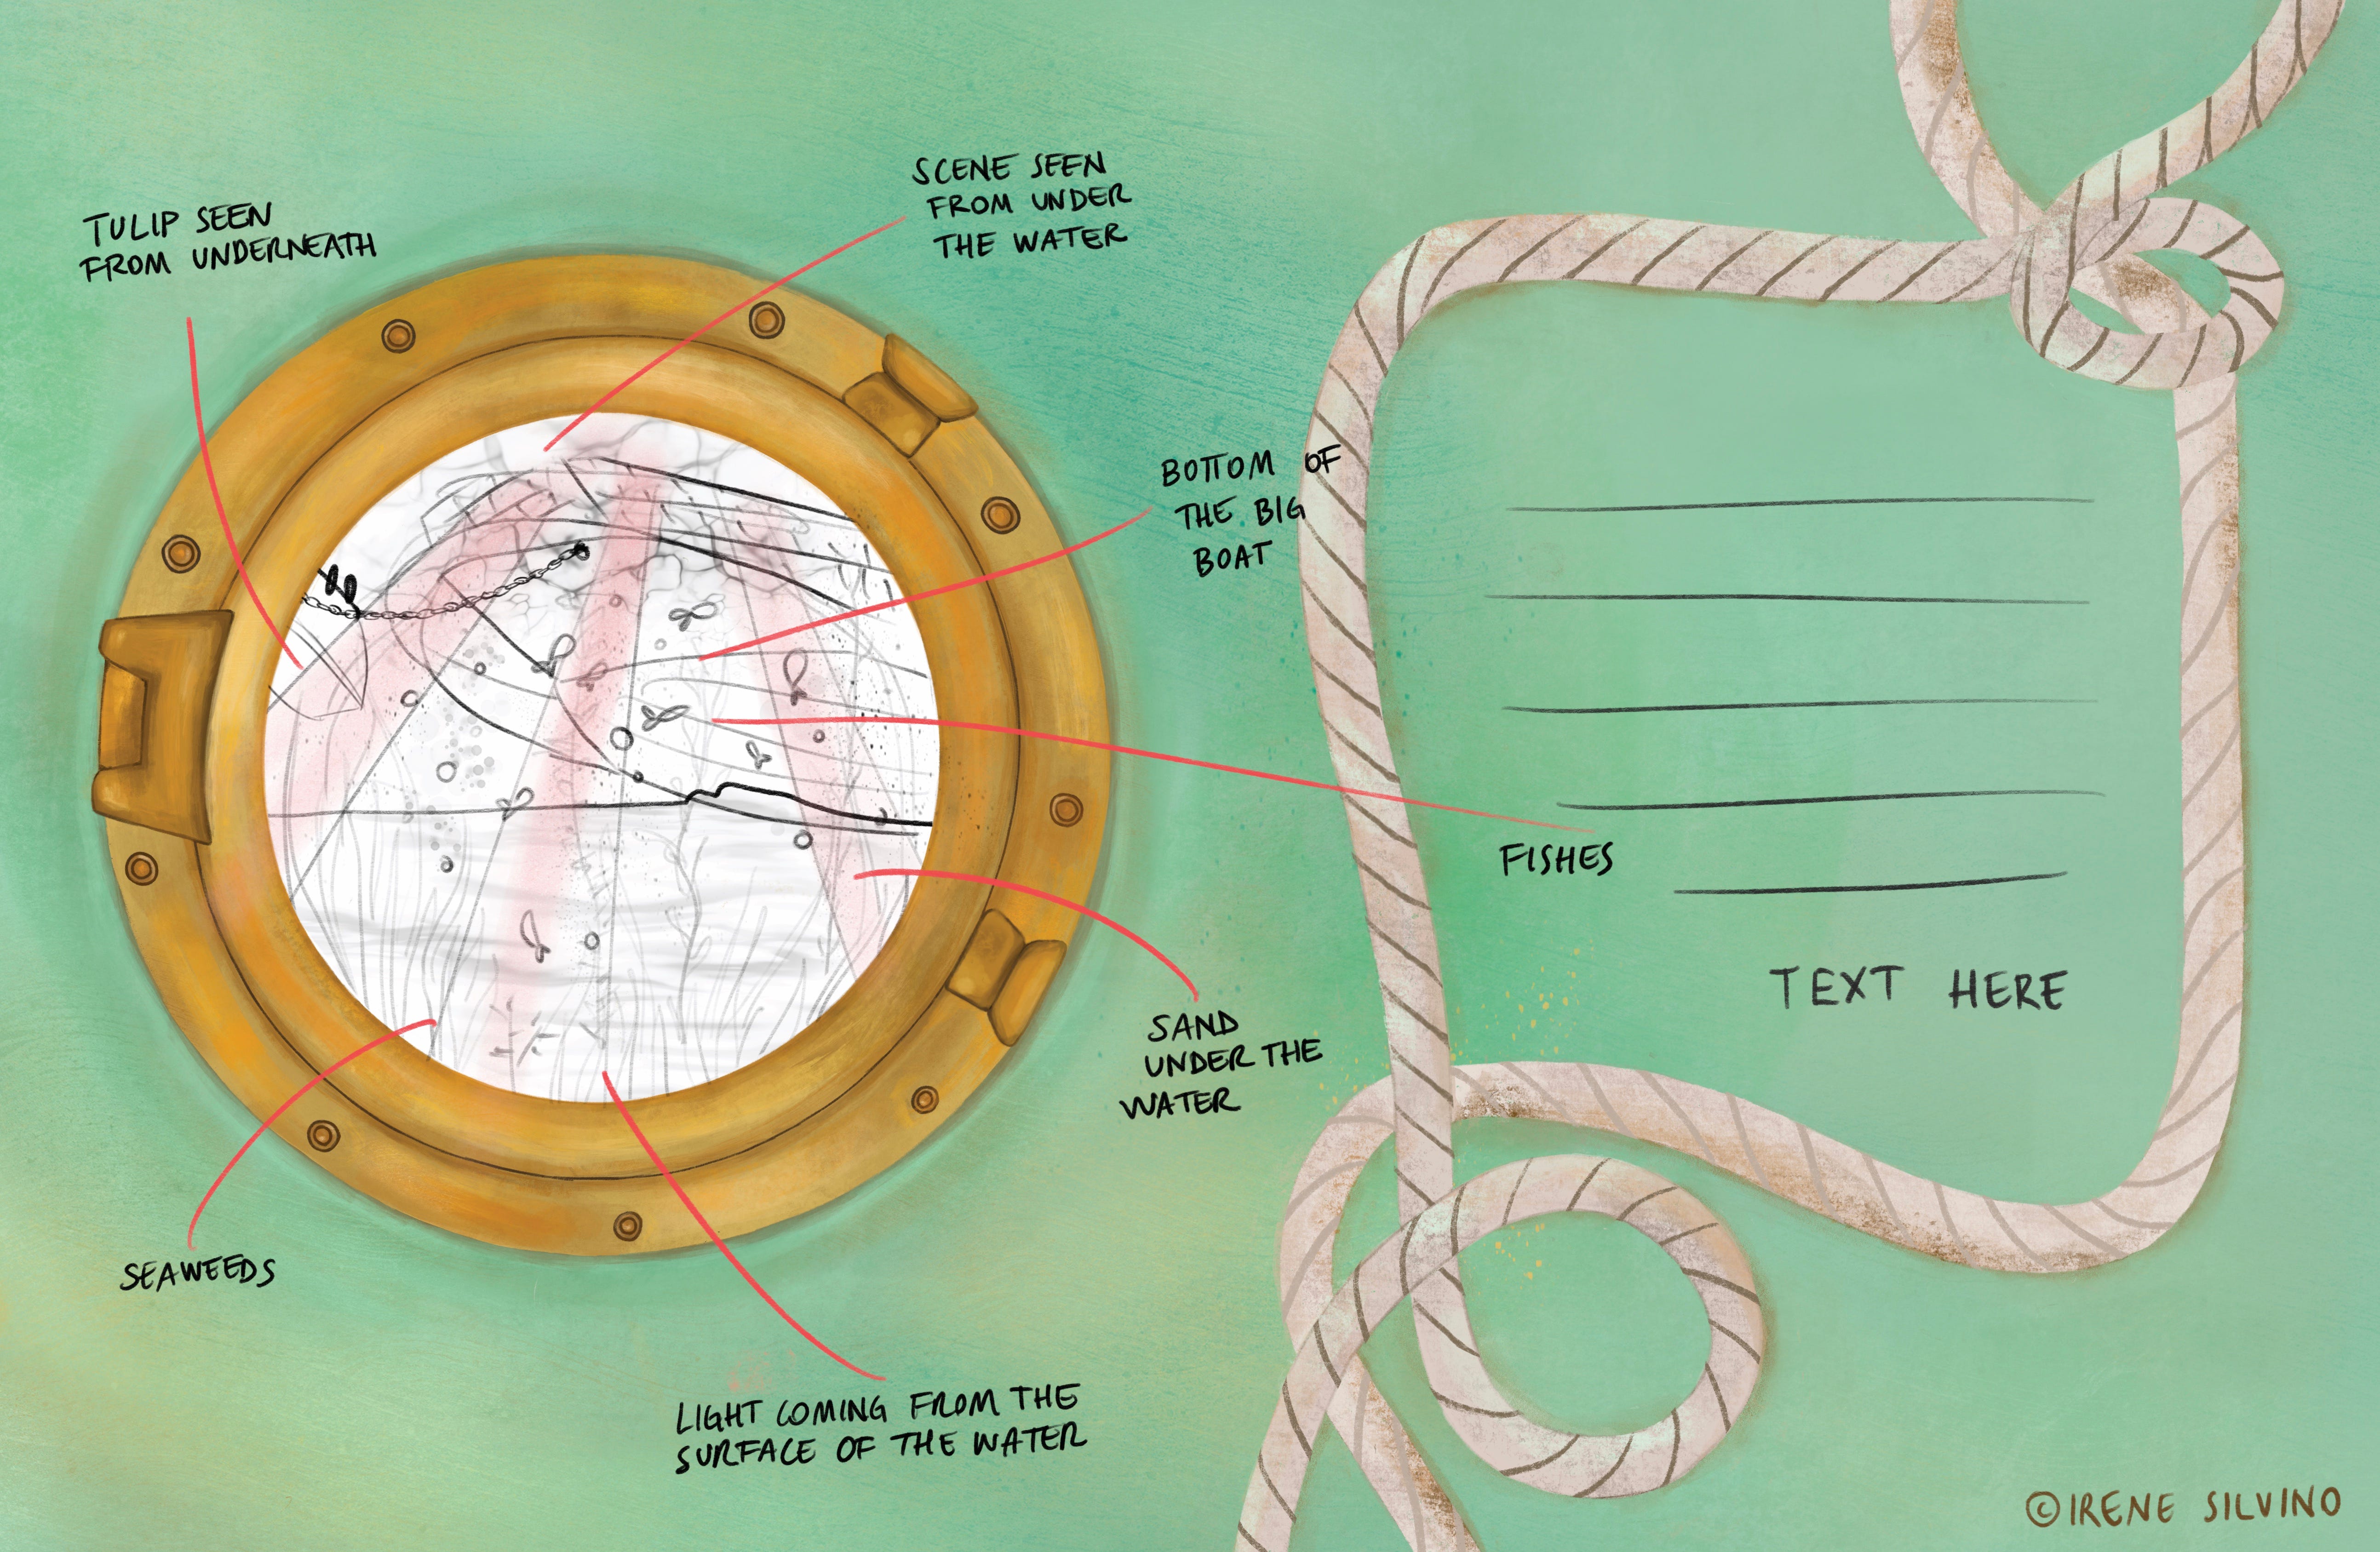 TULIP SEEN
FROM UNDERNEATH
SCENE SEEN
FROM UNDER
THE WATER
BOTTOM OF
THE BIG
BOAT
FISHES
TEXT HERE
SAND
UNDER THE
WATER
SEAWEEDS
LIGHT COMING FROM THE
SURFACE OF THE WATER
© IRENE SILVINO